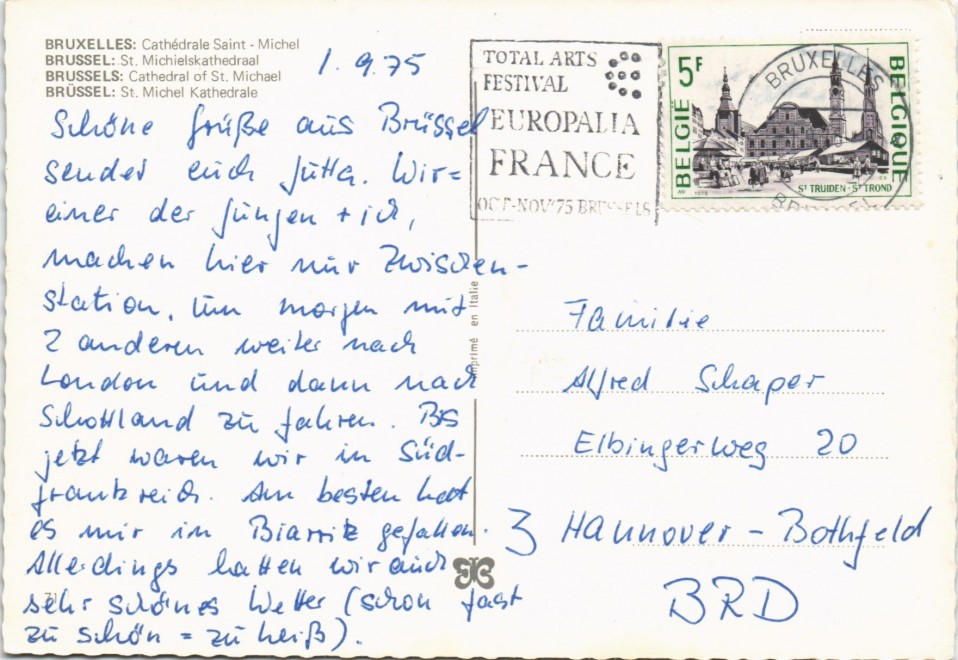 BRUXELLES: Cathédrale Saint - Michel
BRUSSEL: St. Michielskathedraal
BRUSSELS: Cathedral of St. Michael
BRÜSSEL: St. Michel Kathedrale
1.9.75
Schöne Grüße aus Brüssel
sendet euch Jutta. Wir =
einer der Jungen + ich,
machen hier nur Zwischen-
station, um morgen mit
2 anderen weiter nach
London und dann nach
Schottland zu fahren. Bis
jetzt waren wir in Süd-
frankreich. Am besten hat
es mir in Biarritz gefallen.
Allerdings hatten wir auch
sehr schönes Wetter (schon fast
zu schön = zu heiß).
Imprimé en Italie
TOTAL ARTS
FESTIVAL
EUROPALIA
FRANCE
OCT-NOV'75 BRUSSELS
5F
BELGIË
BELGIQUE
ST TRUIDEN - ST TROND
1975
BRUXELLES
BRUSSEL
Familie
Alfred Schaper
Elbingerweg 20
3 Hannover - Bothfeld
BRD